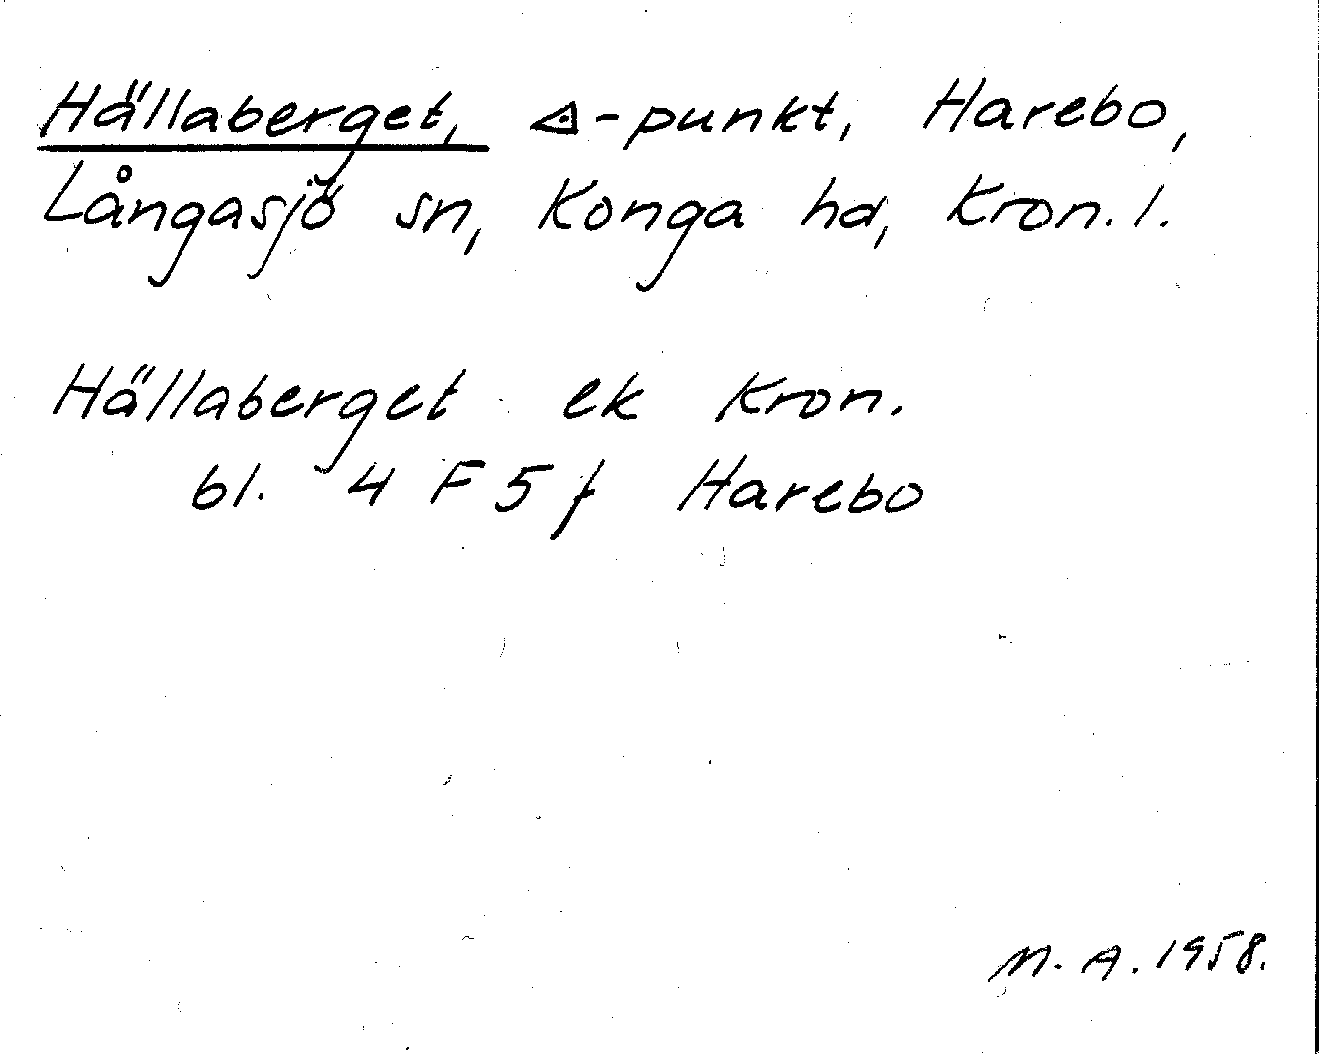 Hällaberget, ◬-punkt, Harebo,
Långasjö sn, Konga hd, Kron. l.
Hällaberget ek Kron.
bl. 4 F 5 f Harebo
M. A. 1958.